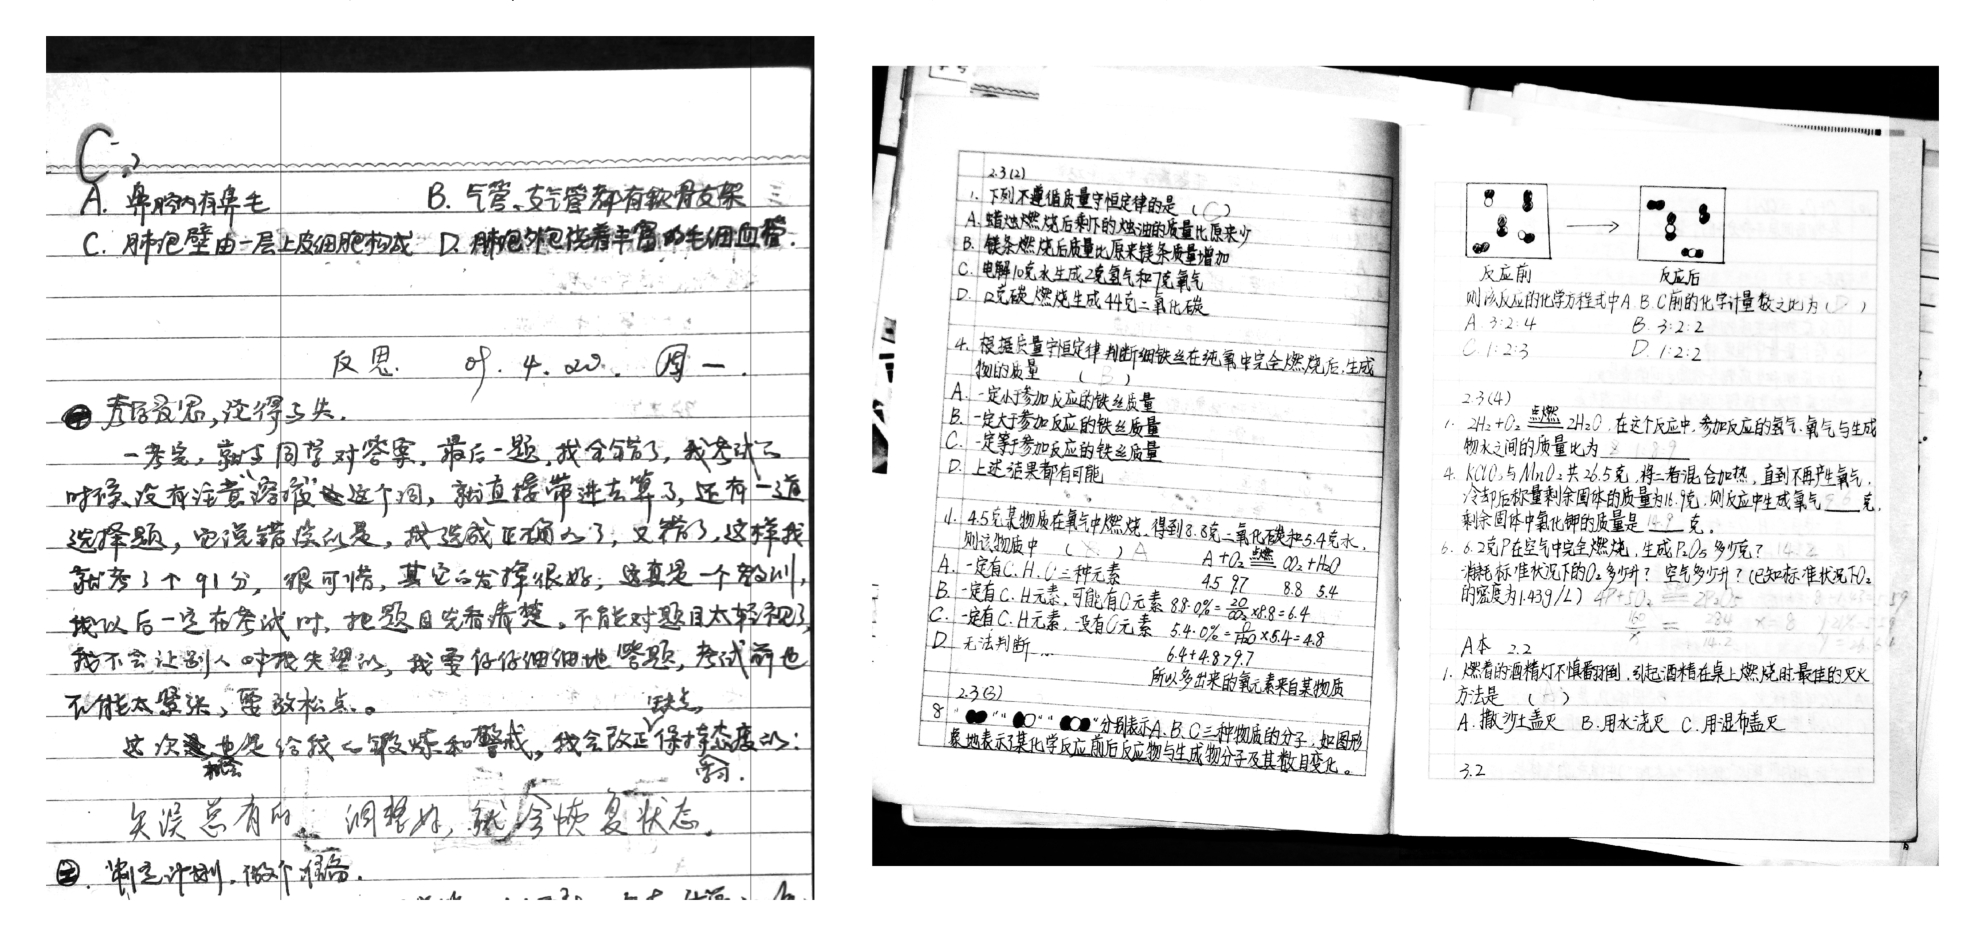 C
A. 鼻腔内有鼻毛 B. 气管、支气管都有软骨支架
C. 肺泡壁由一层上皮细胞构成 D. 肺泡外包绕着丰富的毛细血管.
反思. 09. 4. 20. 周一.
考后反思,论得与失.
一考完,就与同学对答案,最后一题,我全错了,我考试的
时候,没有注意"溶液"这个词,就直接带进去算了,还有一道
选择题,它说错误的是,我选成正确的了,又错了,这样我
就考了个91分,很可惜,其它的发挥很好,这真是一个教训,
我以后一定在考试时,把题目先看清楚,不能对题目太轻视了,
我不会让别人对我失望的,我要仔仔细细地答题,考试前也
不能太紧张,要放松点。
这次机会也是给我的锻炼和警戒,我会改正缺点,保持学习态度的:
失误总有的. 调整好,就会恢复状态.
二. 制定计划,做个准备.
2.3(2)
1. 下列不遵循质量守恒定律的是 (C)
A. 蜡烛燃烧后剩下的烛油的质量比原来少
B. 镁条燃烧后质量比原来镁条质量增加
C. 电解10克水生成2克氢气和7克氧气
D. 12克碳燃烧生成44克二氧化碳
4. 根据质量守恒定律判断细铁丝在纯氧中完全燃烧后,生成
物的质量 (B)
A. 一定小于参加反应的铁丝质量
B. 一定大于参加反应的铁丝质量
C. 一定等于参加反应的铁丝质量
D. 上述结果都有可能
11. 4.5克某物质在氧气中燃烧,得到8.8克二氧化碳和5.4克水,
则该物质中 ( ) A A+O₂ 点燃 CO₂+H₂O
A. 一定有C.H.O三种元素 4.5 9.7 8.8 5.4
B. 一定有C.H元素,可能有O元素 8.8·O%=20/CO₂×8.8=6.4
C. 一定有C.H元素,没有O元素 5.4·O%=O/H₂O×5.4=4.8
D. 无法判断... 6.4+4.8>9.7
所以多出来的氧元素来自某物质
2.3(3)
8 " " " " " "分别表示A.B.C三种物质的分子,如图形
象地表示了某化学反应前后反应物与生成物分子及其数目变化。
反应前 反应后
则该反应的化学方程式中A.B.C前的化学计量数之比为 (D)
A. 3:2:4 B. 3:2:2
C. 1:2:3 D. 1:2:2
2.3(4)
1. 2H₂+O₂ 点燃 2H₂O,在这个反应中,参加反应的氢气.氧气与生成
物水之间的质量比为 1:8:9
4. KClO₃与MnO₂共26.5克,将二者混合加热,直到不再产生氧气,
冷却后称量剩余固体的质量为16.9克,则反应中生成氧气 克,
剩余固体中氯化钾的质量是 14.9 克。
6. 6.2克P在空气中完全燃烧,生成P₂O₅多少克? 14.2
消耗标准状况下的O₂多少升? 空气多少升? (已知标准状况下O₂
的密度为1.43g/L) 4P+5O₂ 2P₂O₅
160 = 284 x=8
x 14.2
A本 2.2
1. 燃着的酒精灯不慎翻倒,引起酒精在桌上燃烧时最佳的灭火
方法是 ( )
A. 撒沙土盖灭 B. 用水浇灭 C. 用湿布盖灭
3.2